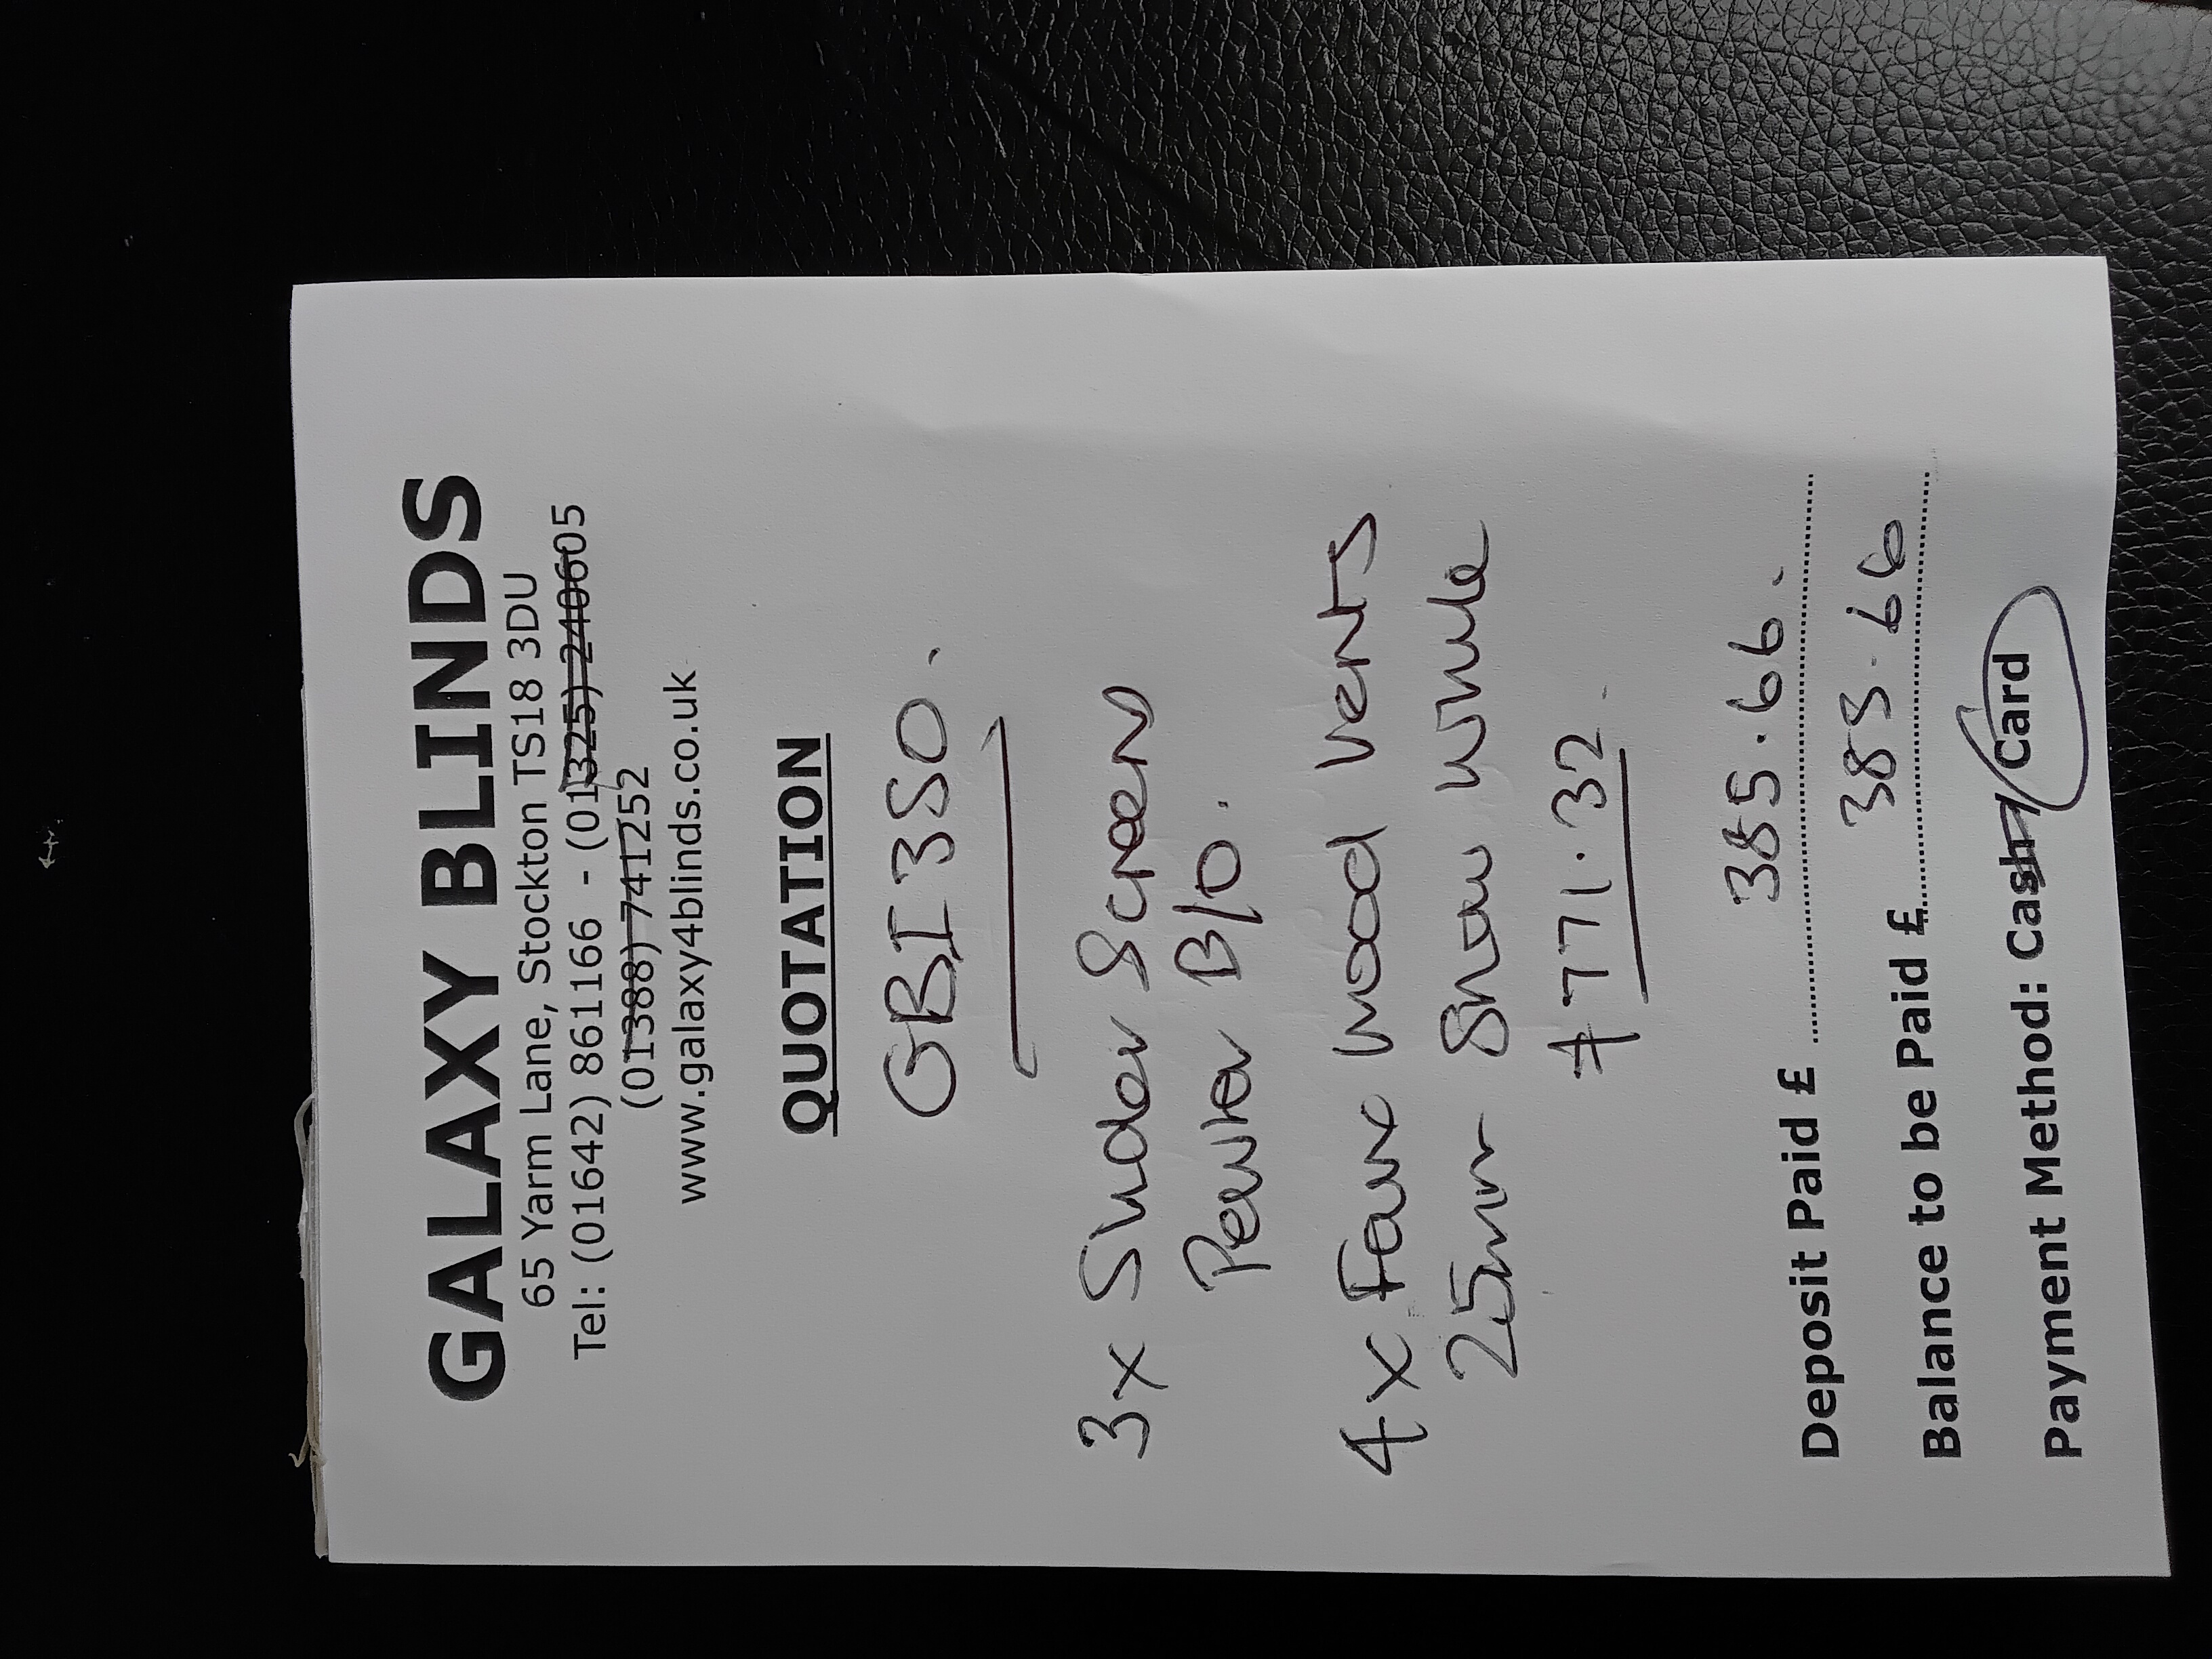 GALAXY BLINDS
65 Yarm Lane, Stockton TS18 3DU
Tel: (01642) 861166 - (01325) 240605
(01388) 741252
www.galaxy4blinds.co.uk
QUOTATION
GBI 350.
3x Slider Screens
Pewter B/O.
4x Faux Wood Vents
25mm Snow White
£771.32.
Deposit Paid £ 385.66.
Balance to be Paid £ 385.66
Payment Method: Cash/Card